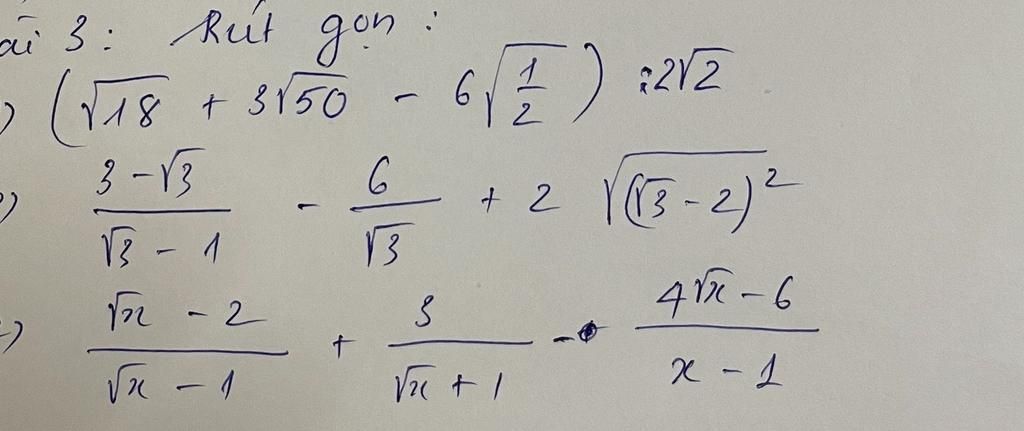 ài 3: Rút gọn:
) (√18 + 3√50 - 6√(1/2)) : 2√2
) (3 - √3)/(√3 - 1) - 6/√3 + 2 √((√3 - 2)²)
) (√x - 2)/(√x - 1) + 3/(√x + 1) - (4√x - 6)/(x - 1)